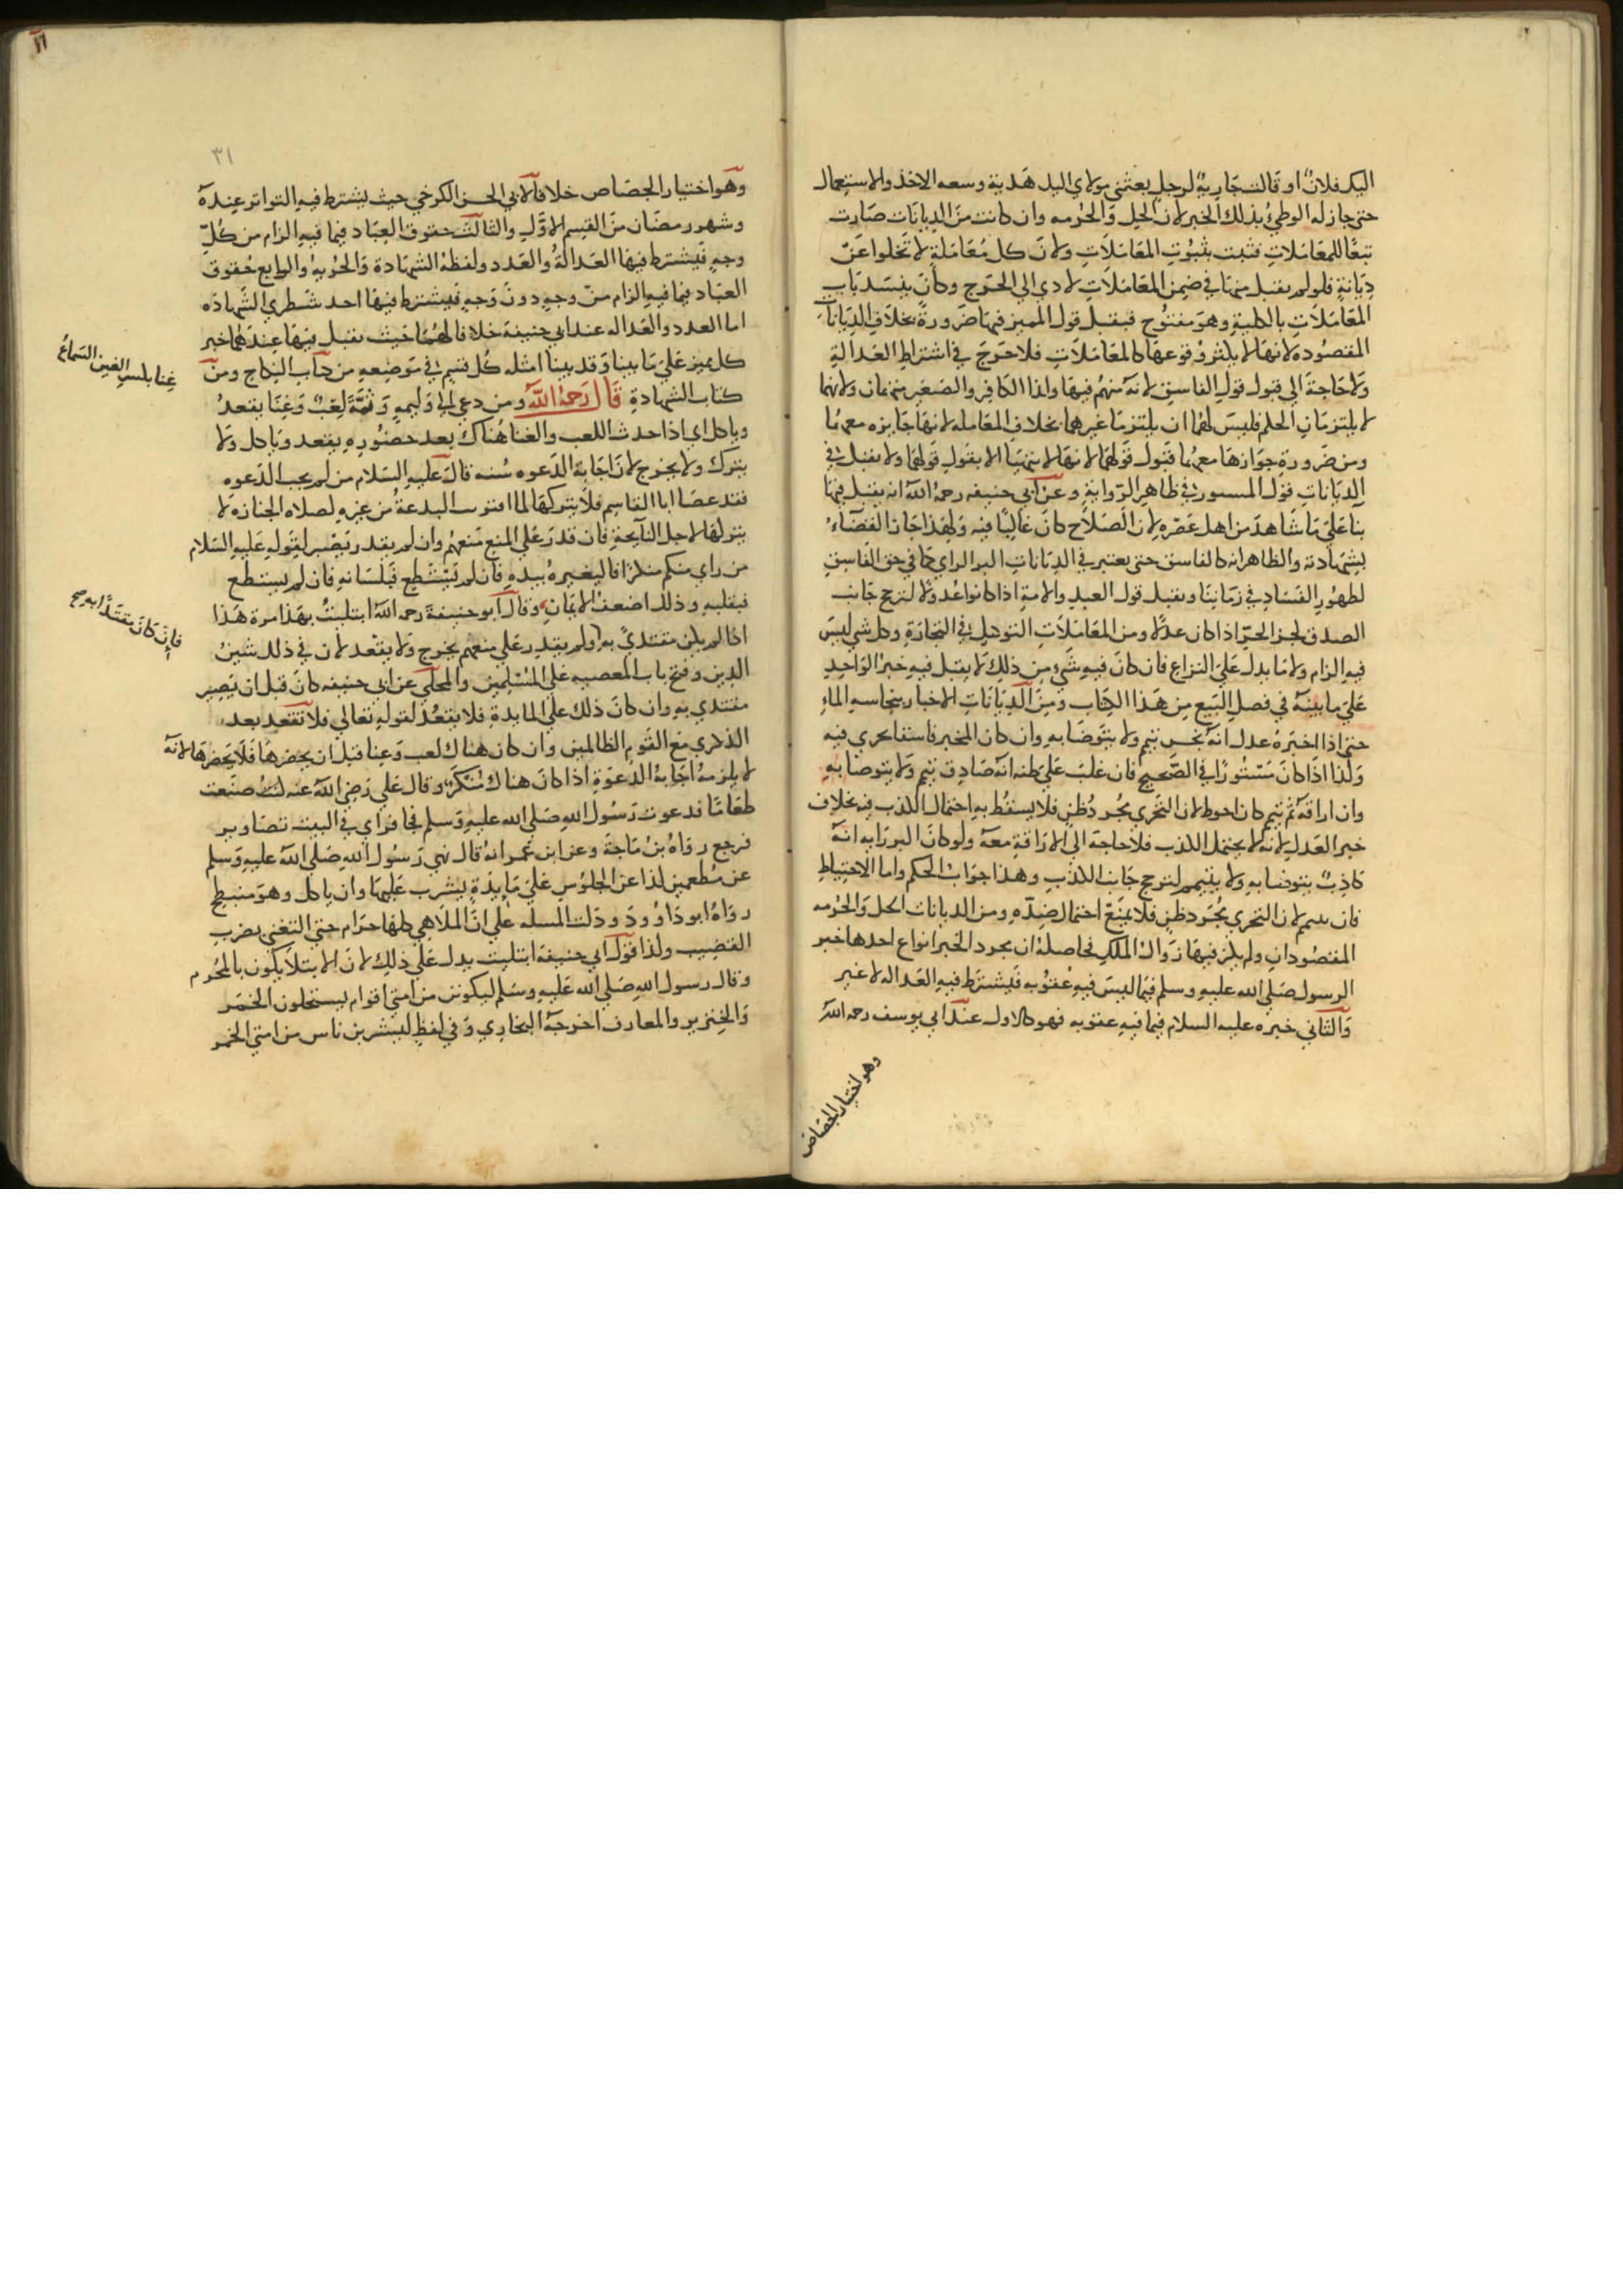 اليك فلان او قالت جارية لرجل بعثني مولاي اليك هدية وسعه الاخذ والاستعمال
حتى جاز له الوطئ بذلك الخبر لان الحل والحرمه وان كانت من الديانات صارت
تبعًا للمعاملات فثبت بثبوت المعاملات ولان كل معاملة لا تخلوا عن
ديانة فلو لم يقبل منها في ضمن المعاملات لادي الى الحرج وكان ينسد باب
المعاملات بالكلية وهو مفتوح فيقبل قول المميز فيها ضرورة بخلاف الديانات
المقصوده لانها لا يكثر وقوعها كالمعاملات فلا حرج في اشتراط العدالة
ولا حاجة الى قبول قول الفاسق لانه متهم فيها ولذا الكافر والصغير متهمان ولانهما
لا يلتزمان الحكم فليس لهما ان يلتزما غيرهما بخلاف المعامله لانها جايزه معهما
ومن ضرورة جوازها معهما قبول قولهما لانها لا يتهيا الا بقول قولهما ولا يقبل في
الديانات قول المستور في ظاهر الرواية وعن ابي حنيفه رحمه الله انه يقبل فيها
بنا على ما شاهد من اهل عصره لان الصلاح كان غالبًا فيه ولهذا جاز القضاء
بشهادته والظاهر انه كالفاسق حتى يعتبر في الديانات اكبر الراي كما في حق الفاسق
لظهور الفساد في زماننا ويقبل قول العبد والامة اذا كانوا عدولا لترجح جانب
الصدق كخبز الحر اذا كان عدلا ومن المعاملات التوكيل في التجارة وكل شي ليس
فيه الزام ولا ما يدل على النزاع فان كان فيه شيء من ذلك لا يقبل فيه خبر الواحد
على ما بينه في فصل البيع من هذا الكتاب ومن الديانات الاخبار بنجاسه الماء
حتى اذا اخبره عدل انه نجس تيمم ولا يتوضا به وان كان المخبر فاسقا تحرى فيه
ولذا اذا كان مستورًا في الصحيح فان غلب على ظنه انه صادق تيمم ولا يتوضا به
وان اراقه ثم تيمم كان احوط لان التحري مجرد ظن فلا يسقط به احتمال الكذب فيه بخلاف
خبر العدل لانه لا يحتمل الكذب فلا حاجة الى الاراقة معه ولو كان اكبر رايه انه
كاذب يتوضا به ولا يتيمم لترجح جانب الكذب وهذا جواب الحكم واما الاحتياط
فان يتيمم لان التحري مجرد ظن فلا يمنع احتمال ضده ومن الديانات الحل والحرمه
المقصودان ولم يلز فيها زوال الملك فحاصله ان مجرد الخبر انواع احدها خبر
الرسول صلى الله عليه وسلم فيما ليس فيه عقوبه فيشترط فيه العداله لا غير
والثاني خبره عليه السلام فيما فيه عقوبه فهو كالاول عند ابي يوسف رحمه الله
وهو اختيار الجصاص
٣١
وهو اختيار الجصاص خلافا لابي الحسن الكرخي حيث يشترط فيه التواتر عنده
وشهر رمضان من القسم الاول والثالث حقوق العباد فيما فيه الزام من كل
وجه فيشترط فيها العدالة والعدد ولفظة الشهادة والحرية والرابع حقوق
العباد فيما فيه الزام من وجه دون وجه فيشترط فيها احد شطري الشهاده
اما العدد والعداله عند ابي حنيفة خلافا لهما حيث يقبل فيها عندهما خبر
كل مميز على ما بينا وقد بينا امثله كل قسم في موضعه من كتاب النكاح ومن
غنا بكسر الغين السماع
كتاب الشهادة قال رحمه الله ومن دعي الى وليمه وثمة لعب وغنا يقعد
وياكل اي اذا حدث اللعب والغنا هناك بعد حضوره يقعد وياكل ولا
يترك ولا يخرج لان اجابة الدعوه سنه قال عليه السلام من لم يجب الدعوه
فقد عصا ابا القاسم فلا يتركها لما اقترنت البدعة من غيره لصلاه الجنازه لا
يتركها لاجل النايحة فان قدر على المنع منعهم وان لم يقدر يصبر لقوله عليه السلام
من راي منكم منكرًا فاليغيره بيده فان لم يستطع فبلسانه فان لم يستطع
فبقلبه وذلك اضعف الايمان وقال ابو حنيفة رحمه الله ابتليت بهذا مرة هذا
اذا لم يكن مقتدي به ولم يقدر على منعهم يخرج ولا يقعد لان في ذلك شين
فان كان مقتدًا به صح
الدين وفتح باب المعصيه على المسلمين والمحكي عن ابي حنيفه كان قبل ان يصير
مقتدي به وان كان ذلك على المايدة فلا يقعد لقوله تعالى فلا تقعد بعد
الذكرى مع القوم الظالمين وان كان هناك لعب وغنا قبل ان يحضرها فلا يحضرها لانه
لا يلزمه اجابة الدعوة اذا كان هناك منكر وقال علي رضي الله عنه لما صنعت
طعامًا فدعوت رسول الله صلى الله عليه وسلم فجا فراي في البيت تصاوير
فرجع رواه بن ماجة وعن ابن عمر انه قال نهي رسول الله صلى الله عليه وسلم
عن مطعمين لذا عن الجلوس على مايدة يشرب عليها وان ياكل وهو منبطح
رواه ابو داوود ودلت المسله على ان الملاهي كلها حرام حتى التغني بضرب
القضيب ولذا قول ابي حنيفة ابتليت يدل على ذلك لان الابتلا يكون بالمحرم
وقال رسول الله صلى الله عليه وسلم ليكونن من امتي اقوام يستحلون الخمر
والخنزير والمعارف اخرجه البخاري وفي لفظ ليشربن ناس من امتي الخمر